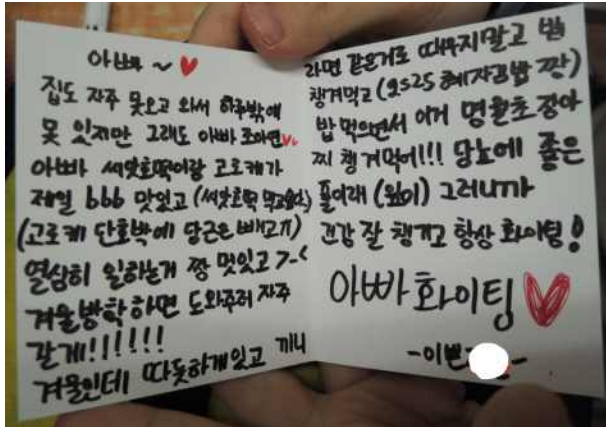 아빠~♥
집도 자주 못오고 와서 하루밖에
못 있지만 그래도 아빠 조아연♥
아빠 씨앗호떡이랑 고로케가
제일 bbb 맛있고 (씨앗호떡 먹고싶다)
(고로케 단호박에 당근은 빼고ㅠ)
열심히 일하는거 짱 멋있고 >-<
겨울방학하면 도와주러 자주
갈게!!!!!!
겨울인데 따듯하게있고 끼니
라면 같은거로 때우지말고 밥
챙겨먹고 (GS25 혜자김밥 짱)
밥 먹으면서 이거 명월초장아
찌 챙겨먹어!!! 당뇨에 좋은
풀이래 (원이) 그러니까
건강 잘 챙기고 항상 화이팅!
아빠 화이팅♥
-이쁜